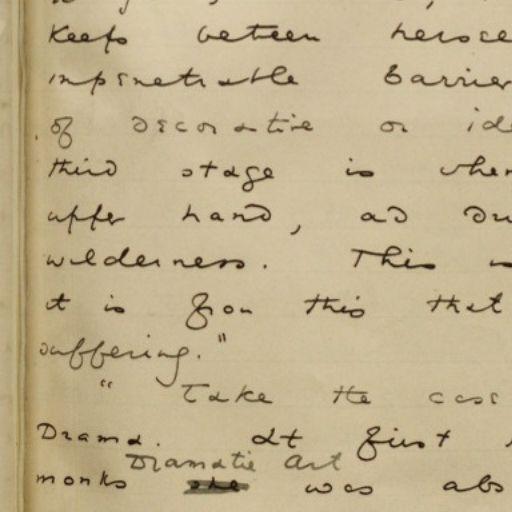 keeps between herse
impenetrable barrier
of decorative or ide
third stage is when
upper hand, ad du
wilderness. This is
it is from this that
suffering."
"Take the case
Drama. At first
Dramatic Art
monks she was abs